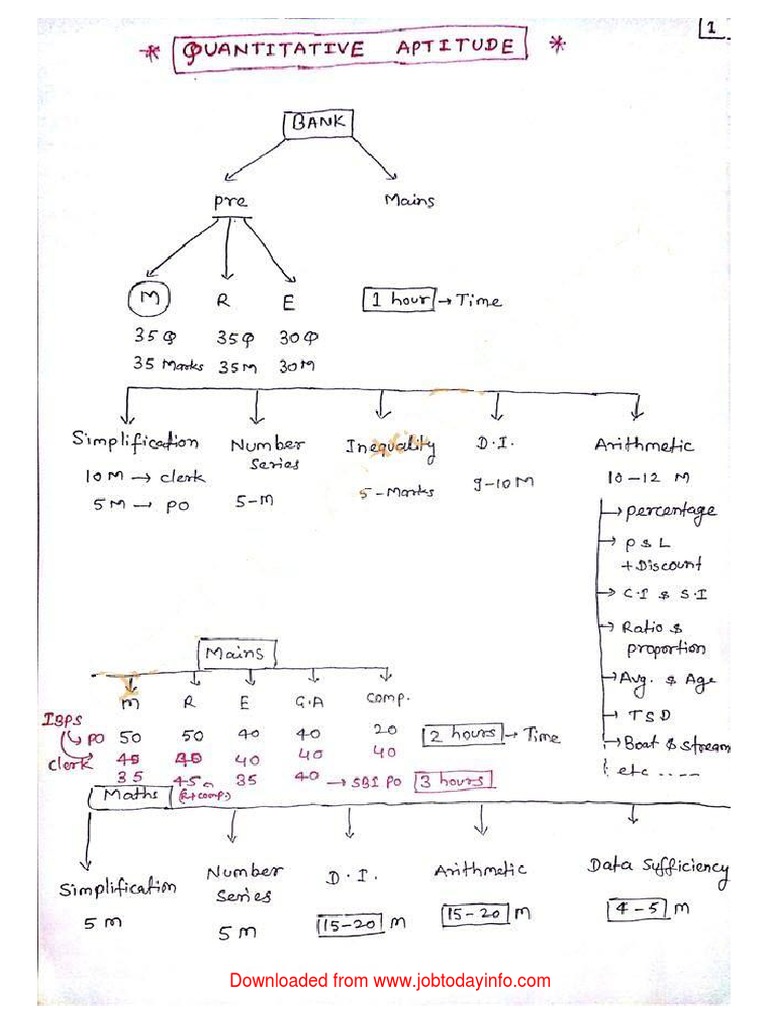 1
* QUANTITATIVE APTITUDE *
BANK
pre Mains
M R E 1 hour → Time
35Q 35Q 30Q
35 Marks 35M 30M
Simplification Number Series Inequality D.I. Arithmetic
10M → clerk 5-M 5-Marks 9-10M 10-12 M
5M → PO
→ percentage
→ P & L
+ Discount
→ C.I & S.I
→ Ratio &
proportion
→ Avg. & Age
→ TSD
→ Boat & stream
etc .....
Mains
M R E G.A Comp.
IBPS
PO 50 50 40 40 20 2 hours → Time
clerk 40 40 40 40
35 45 35 40 → SBI PO 3 hours
Maths (R+comp.)
Simplification Number Series D.I. Arithmetic Data Sufficiency
5 M 5 M 15-20 M 15-20 M 4-5 M
Downloaded from www.jobtodayinfo.com